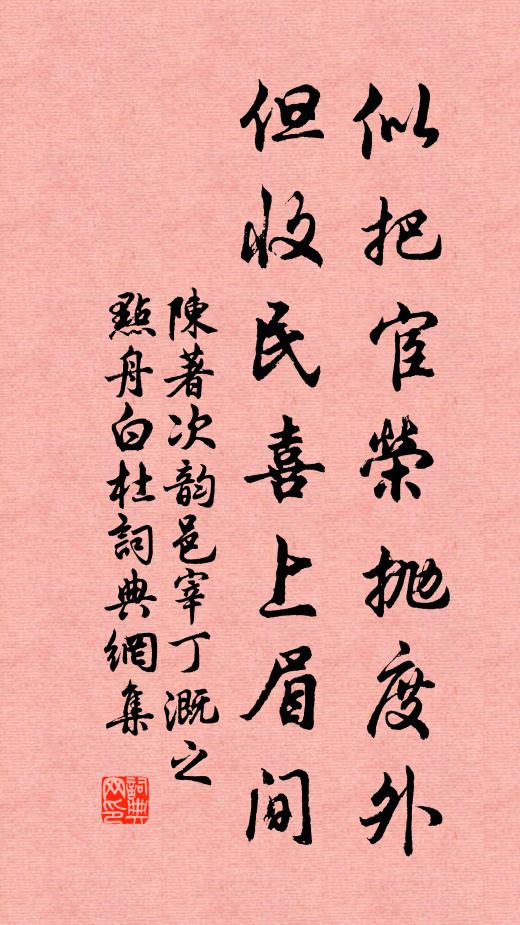 似把宦榮抛度外
但收民喜上眉間
陳著次韵邑宰丁溉之
點舟白杜詞典網集
詞典网印